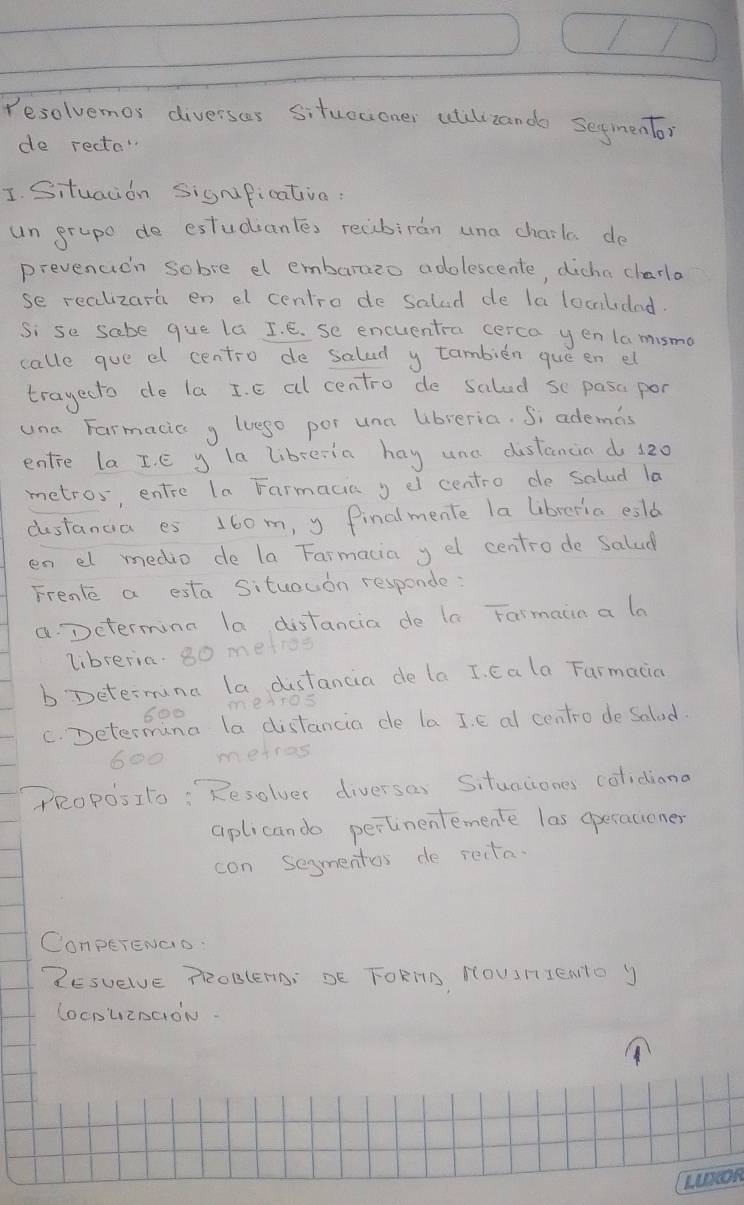 resolvemos diversas situaciones utilizando segmentos
de recta"
I. Situación significativa:
un grupo de estudiantes recibirán una charla de
prevención sobre el embarazo adolescente, dicha charla
se realizará en el centro de salud de la localidad.
Si se sabe que la I.E. se encuentra cerca y en la misma
calle que el centro de salud y también que en el
trayecto de la I.E al centro de salud se pasa por
una Farmacia y luego por una libreria. Si además
entre la I.E y la libreria hay una distancia de 120
metros, entre la Farmacia y el centro de salud la
distancia es 160 m, y finalmente la libreria está
en el medio de la Farmacia y el centro de salud
Frente a esta situación responde:
a. Determina la distancia de la Farmacia a la
libreria. 80 metros
b Determina la distancia de la I.E a la Farmacia
600 metros
c. Determina la distancia de la I.E al centro de Salud.
600 metros
PROPÓSITO: Resolver diversas situaciones cotidiana
aplicando pertinentemente las operaciones
con segmentos de recta.
COMPETENCIA:
RESUELVE PROBLEMAS DE FORMA, MOVIMIENTO y
LOCALIZACIÓN.
1
LUXOR